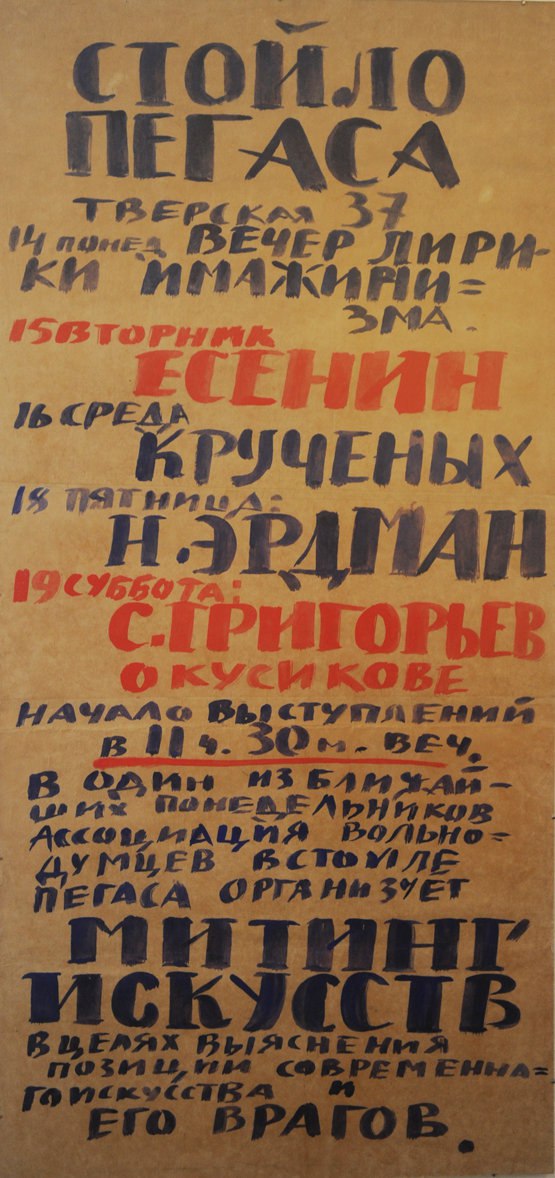 СТОЙЛО
ПЕГАСА
ТВЕРСКАЯ 37
14 ПОНЕД ВЕЧЕР ЛИРИ-
КИ ИМАЖИНИ=
ЗМА.
15 ВТОРНИК
ЕСЕНИН
16 СРЕДА
КРУЧЕНЫХ
18 ПЯТНИЦА:
Н. ЭРДМАН
19 СУББОТА:
С. ГРИГОРЬЕВ
О КУСИКОВЕ
НАЧАЛО ВЫСТУПЛЕНИЙ
В 11 Ч. 30 М. ВЕЧ.
В ОДИН ИЗ БЛИЖАЙ-
ШИХ ПОНЕДЕЛЬНИКОВ
АССОЦИАЦИЯ ВОЛЬНО=
ДУМЦЕВ В СТОЙЛЕ
ПЕГАСА ОРГАНИЗУЕТ
МИТИНГ
ИСКУССТВ
В ЦЕЛЯХ ВЫЯСНЕНИЯ
ПОЗИЦИИ СОВРЕМЕННА=
ГО ИСКУССТВА И
ЕГО ВРАГОВ.